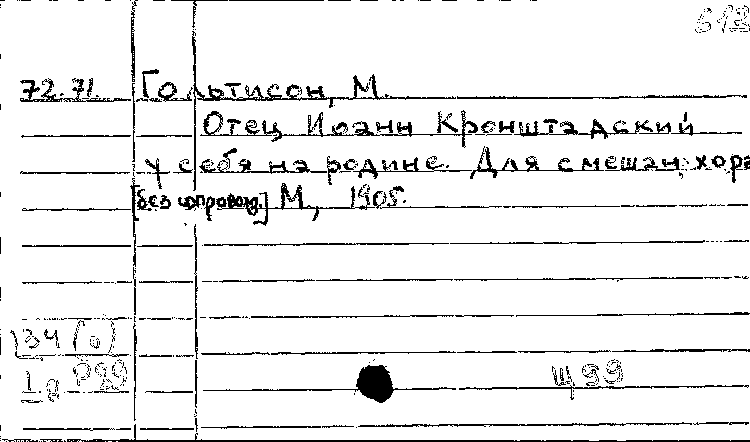 613
72.71. Гольтисон, М.
Отец Иоанн Кронштадский
у себя на родине. Для смешан. хора
[без сопровожд.] М., 1905.
34 (0)
Р99
1 8
Щ 99